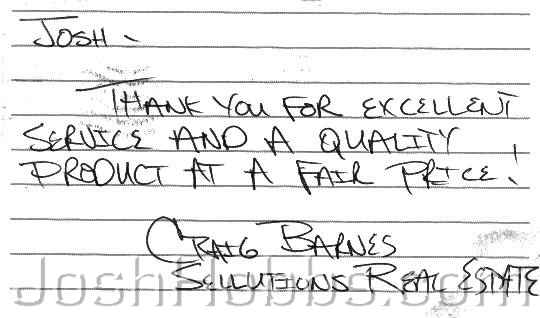 JOSH -
THANK YOU FOR EXCELLENT
SERVICE AND A QUALITY
PRODUCT AT A FAIR PRICE!
CRAIG BARNES
SELLUTIONS REAL ESTATE
JoshHobbs.com